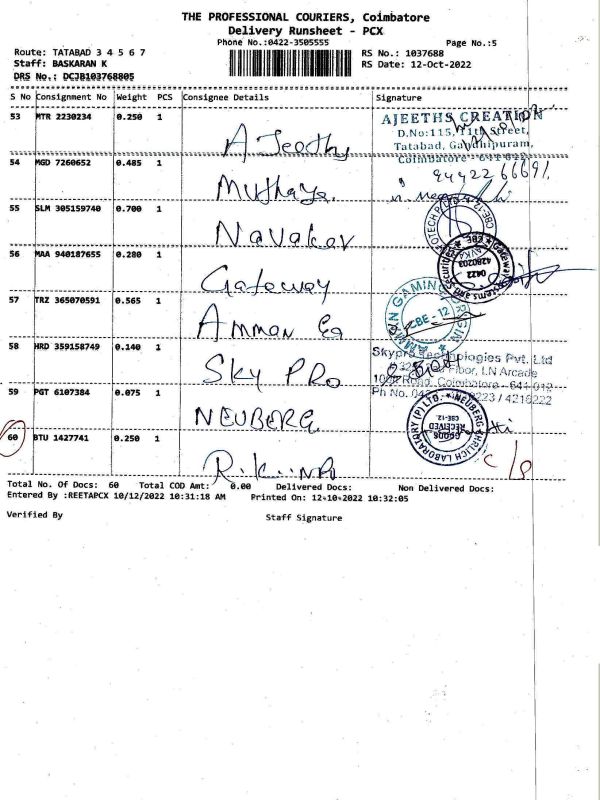 THE PROFESSIONAL COURIERS, Coimbatore
Delivery Runsheet - PCX
Phone No.:0422-3505555
Page No.:5
Route: TATABAD 3 4 5 6 7
RS No.: 1037688
Staff: BASKARAN K
RS Date: 12-Oct-2022
DRS No.: DCJB103768805
S No Consignment No Weight PCS Consignee Details Signature
53 MTR 2230234 0.250 1
AJEETHS CREATION
D.No:115, 11th Street,
Tatabad, Gandhipuram,
Coimbatore - 641 012
54 MGD 7260652 0.485 1
55 SLM 305159740 0.700 1
56 MAA 940187655 0.280 1 Gateway
57 TRZ 365070591 0.565 1 Amman
CBE - 12
58 HRD 359158749 0.140 1 SKY PRO
Skypro Technologies Pvt. Ltd
Floor, I.N Arcade
Road, Coimbatore - 641 012
59 PGT 6107384 0.075 1 NEUBERG
NEUBERG EHRLICH LABORATORY (P) LTD.
CBE-12
GOODS
RECEIVED
60 BTU 1427741 0.250 1
Total No. Of Docs: 60 Total COD Amt: 0.00 Delivered Docs: Non Delivered Docs:
Entered By :REETAPCX 10/12/2022 10:31:18 AM Printed On: 12-10-2022 10:32:05
Verified By Staff Signature